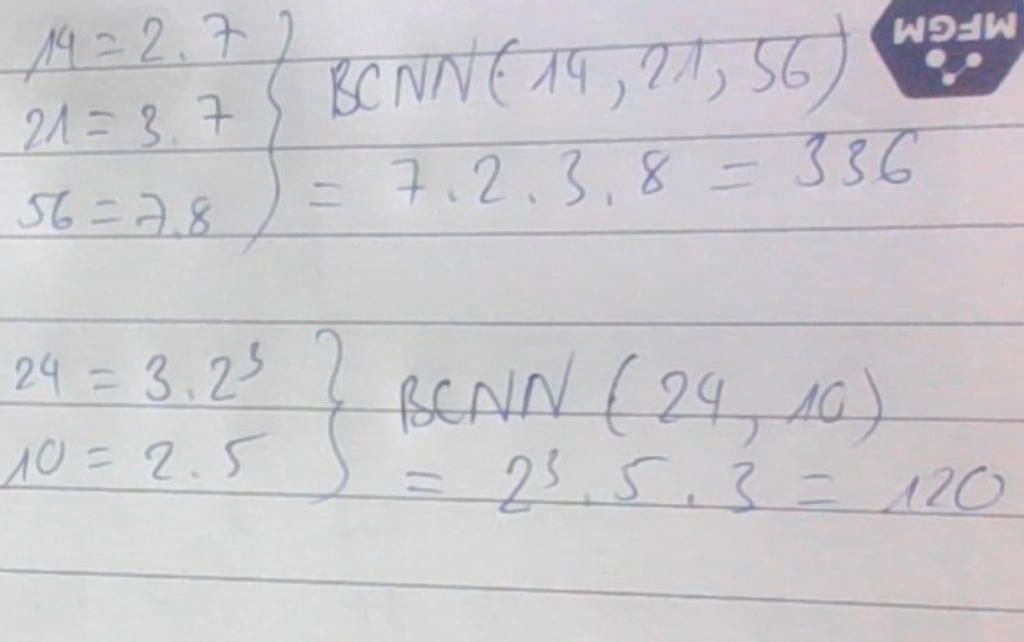 14 = 2.7
21 = 3.7
56 = 7.8
BCNN(14, 21, 56)
= 7.2.3.8 = 336
MFGM
24 = 3.2³
10 = 2.5
BCNN (24, 10)
= 2³.5.3 = 120